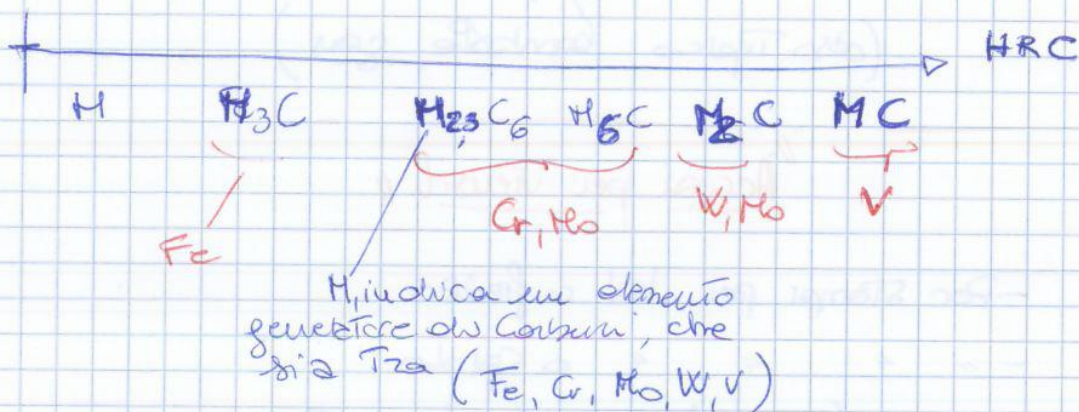 HRC
M M₃C M₂₃C₆ M₆C M₂C MC
Fe Cr, Mo W, Mo V
M, indica un elemento
generatore di Carburi, che
sia Tra (Fe, Cr, Mo, W, V)